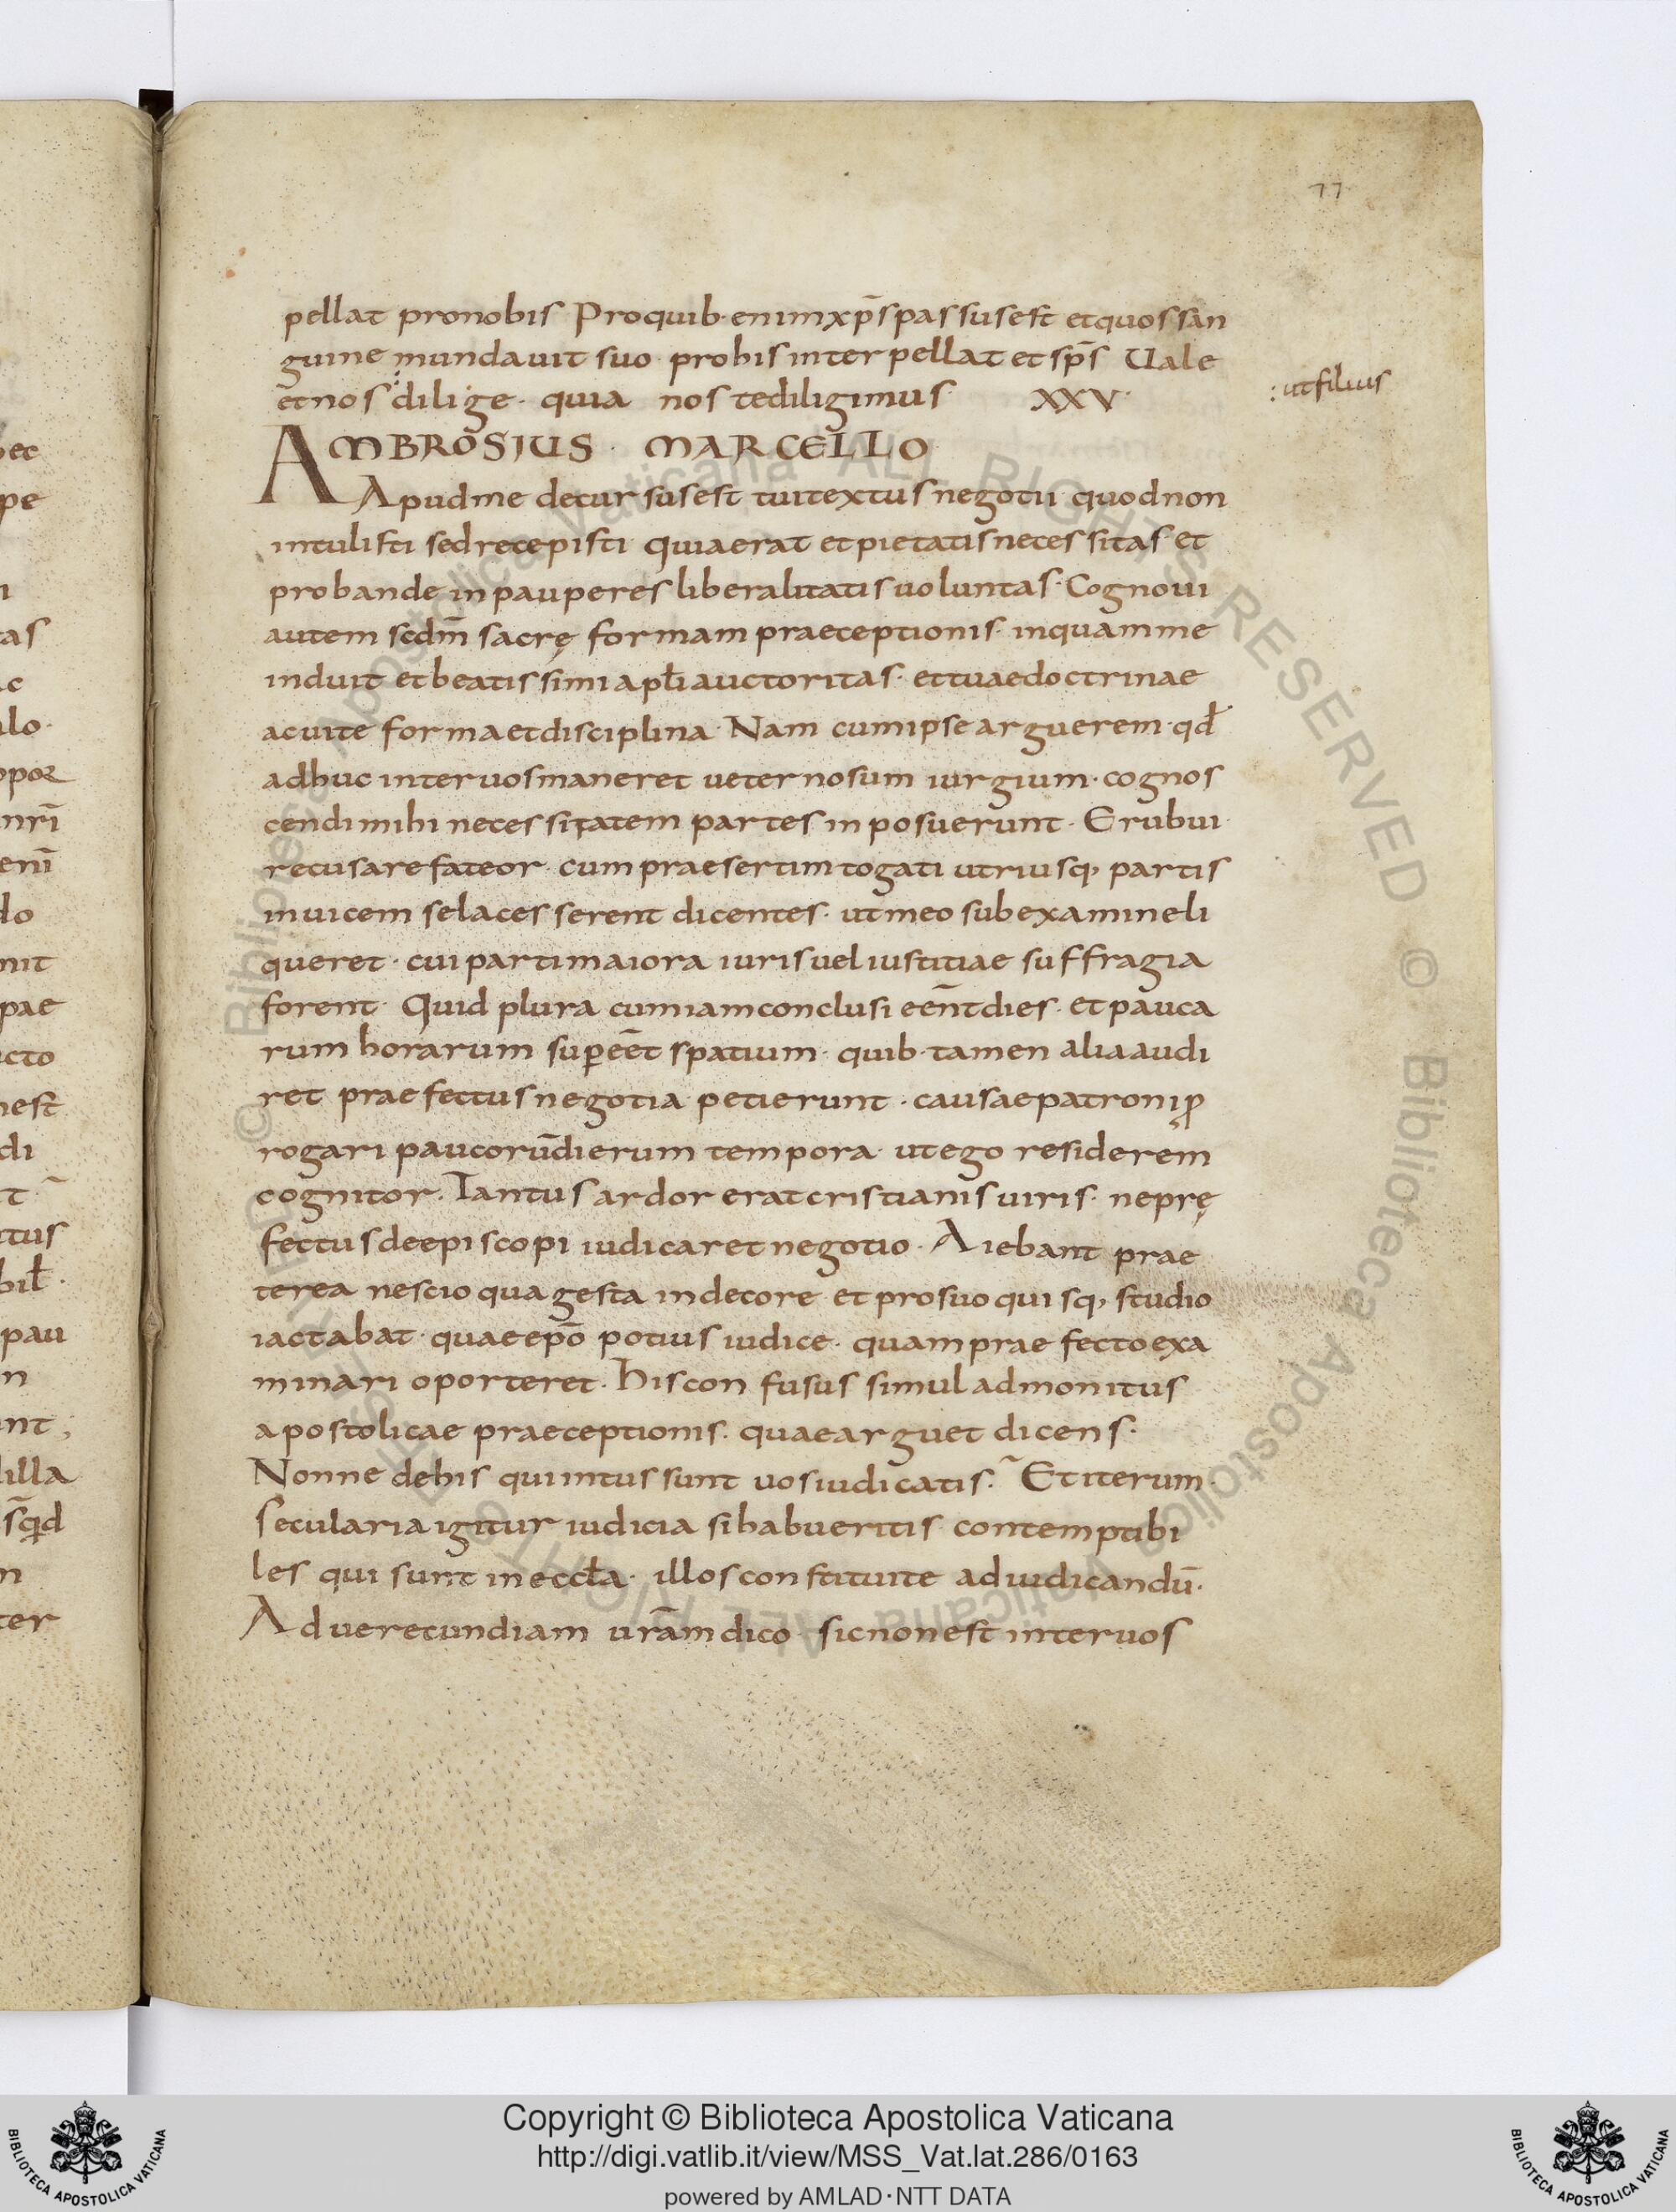 77
pellat pro nobis Pro quib· enim xp̄s passus est et quos san
guine mundauit suo· pro his interpellat et sp̄s Uale
et nos dilige· quia nos te diligimus· XXV·
: ut filius
AMBROSIUS· MARCELLO
Apud me decursus est tui textus negotii quod non
intulisti sed recepisti quia erat et pietatis necessitas et
probande in pauperes liberalitatis uoluntas· Cognoui
autem scdm̄ sacrę formam praeceptionis· in quam me
induit et beatissimi apl̄i auctoritas· et tuae doctrinae
ac uite forma et disciplina· Nam cum ipse arguerem· qd̄
adhuc inter uos maneret ueternosum iurgium· cognos
cendi mihi necessitatem partes inposuerunt· Erubui·
recusare fateor· cum praesertim togati utriusq; partis
inuicem se lacesserent dicentes· ut meo sub examine li
queret· cui parti maiora iuris uel iustitiae suffragia
forent· Quid plura cum iam conclusi eēnt dies· et pauca
rum horarum supeēt spatium· quib· tamen alia audi
ret praefectus negotia petierunt· causae patroni p
rogari paucorū dierum tempora· ut ego residerem
cognitor. Tantus ardor erat cristianis uiris· ne prę
fectus de episcopi iudicaret negotio· Aiebant prae
terea nescio qua gesta indecore et pro suo quisq; studio
iactabat· quae ep̄o potius iudice· quam praefecto exa
minari oporteret. His confusus simul admonitus
apostolicae praeceptionis· quae arguet dicens·
Nonne de his qui intus sunt uos iudicatis· Et iterum·
Secularia igitur iudicia si habueritis contemptibi
les qui sunt in eccl̄a· illos constituite ad iudicandū·
Ad uerecundiam ur̄am dico· sic non est inter uos
Copyright © Biblioteca Apostolica Vaticana
http://digi.vatlib.it/view/MSS_Vat.lat.286/0163
powered by AMLAD·NTT DATA